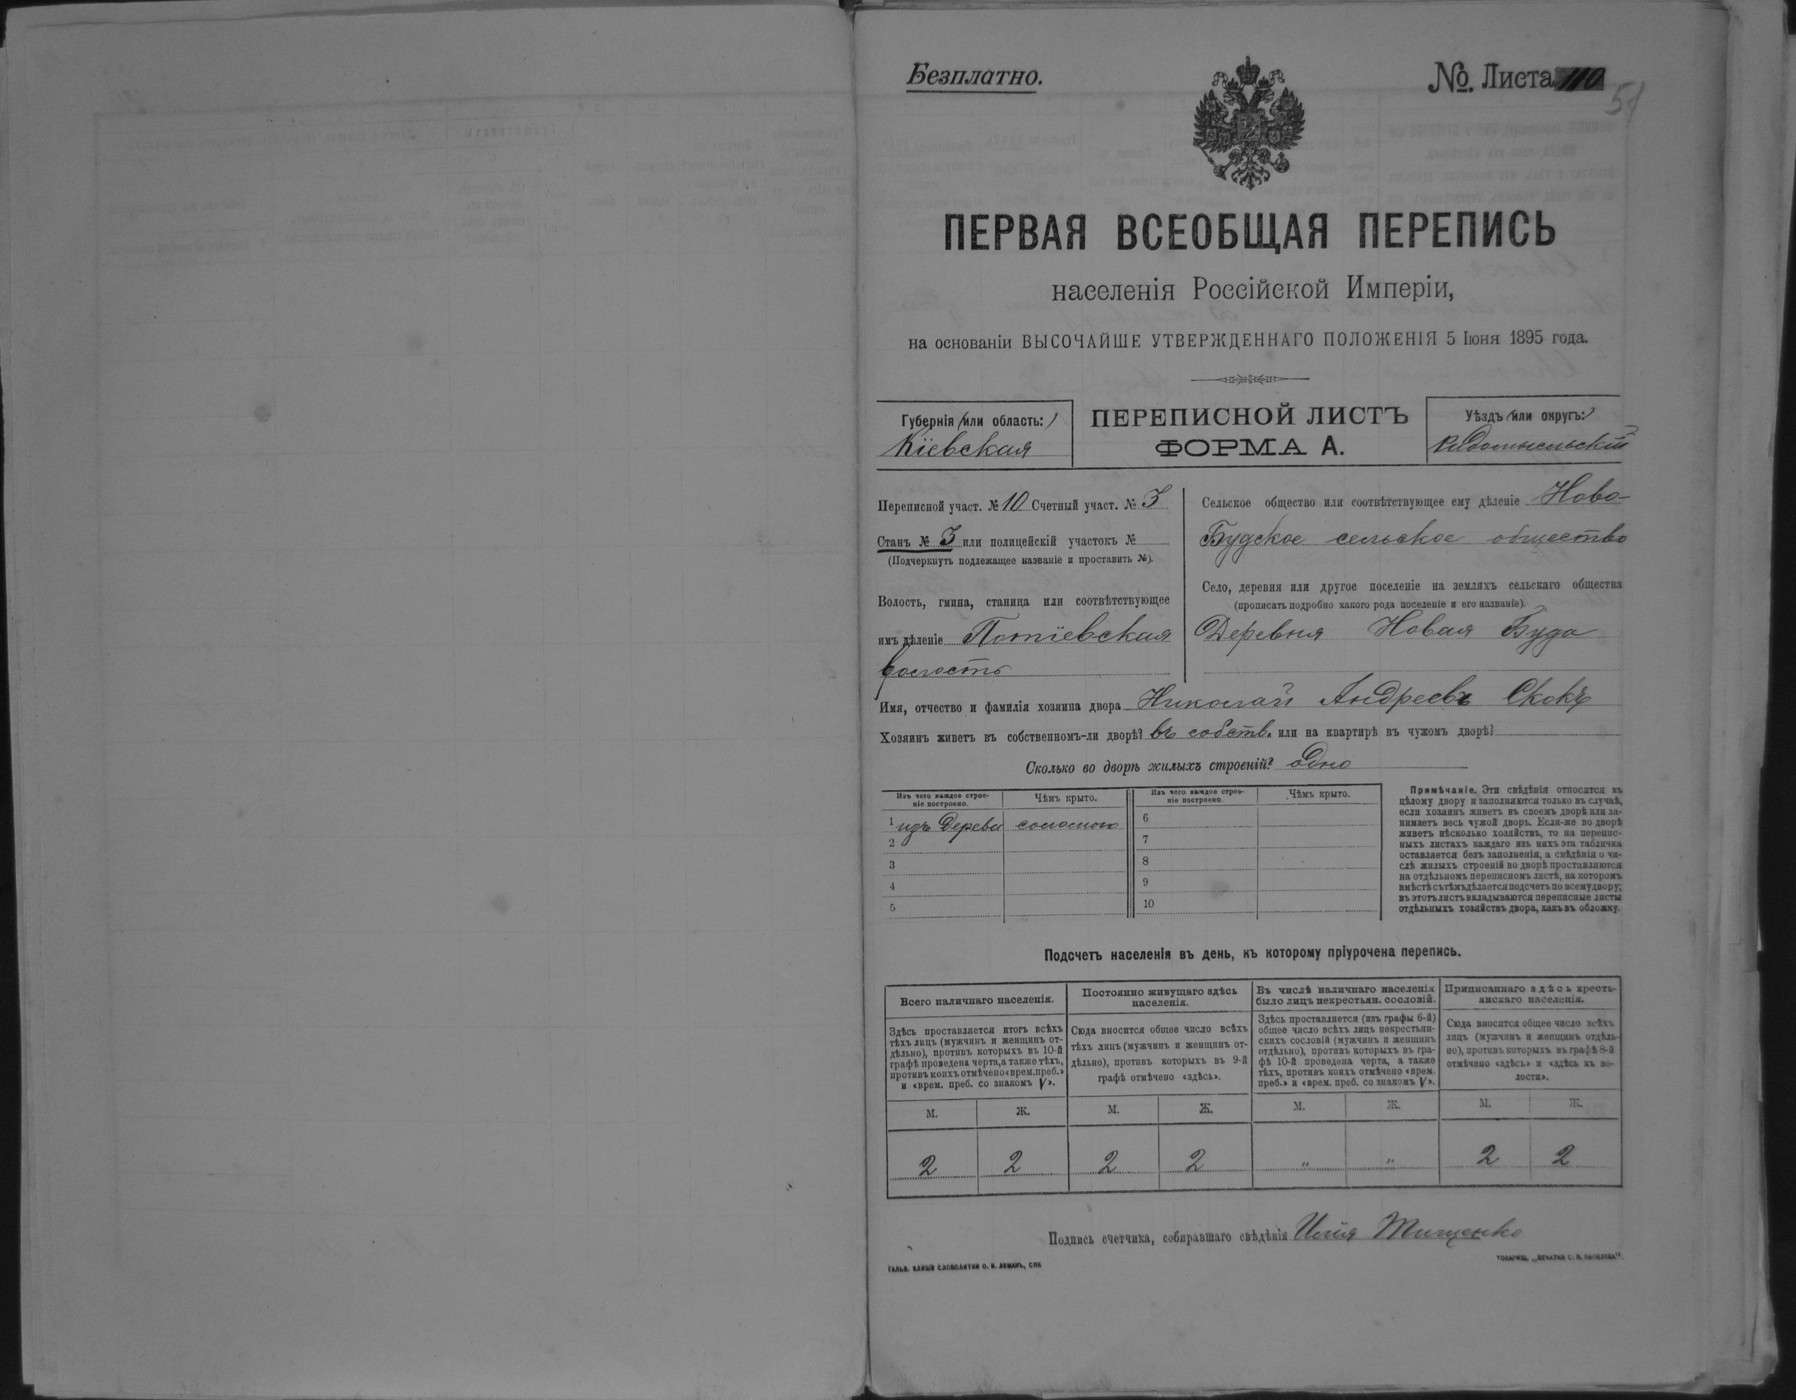 Безплатно.
№. Листа 110
58
ПЕРВАЯ ВСЕОБЩАЯ ПЕРЕПИСЬ
населенія Россійской Имперіи,
на основаніи ВЫСОЧАЙШЕ УТВЕРЖДЕННАГО ПОЛОЖЕНІЯ 5 Іюня 1895 года.
Губернія (или область:)
Кіевская
ПЕРЕПИСНОЙ ЛИСТЪ
ФОРМА А.
Уѣздъ (или округъ:)
Радомысльскій
Переписной участ. № 10 Счетный участ. № 3
Станъ № 3 или полицейскій участокъ №
(Подчеркнуть подлежащее названіе и проставить №).
Волость, гмина, станица или соотвѣтствующее
имъ дѣленіе Потіевская
волость
Сельское общество или соотвѣтствующее ему дѣленіе Ново-
Будское сельское общество
Село, деревня или другое поселеніе на земляхъ сельскаго общества
(прописать подробно какого рода поселеніе и его названіе).
Деревня Новая Буда
Имя, отчество и фамилія хозяина двора Николай Андреевъ Скокъ
Хозяинъ живетъ въ собственномъ-ли дворѣ? въ собств. или на квартирѣ въ чужомъ дворѣ?
Сколько во дворѣ жилыхъ строеній? одно
Изъ чего каждое строе-
ніе построено.
Чѣмъ крыто.
Изъ чего каждое строе-
ніе построено.
Чѣмъ крыто.
1 изъ дерева соломою
2
3
4
5
6
7
8
9
10
Примѣчаніе. Эти свѣдѣнія относятся къ
цѣлому двору и заполняются только въ случаѣ,
если хозяинъ живетъ въ своемъ дворѣ или за-
нимаетъ весь чужой дворъ. Если-же во дворѣ
живетъ нѣсколько хозяйствъ, то на перепис-
ныхъ листахъ каждаго изъ нихъ эта табличка
оставляется безъ заполненія, а свѣдѣнія о чи-
слѣ жилыхъ строеній во дворѣ проставляются
на отдѣльномъ переписномъ листѣ, на которомъ
вмѣстѣ съ тѣмъ дѣлается подсчетъ по всему двору;
въ этотъ листъ вкладываются переписные листы
отдѣльныхъ хозяйствъ двора, какъ въ обложку.
Подсчетъ населенія въ день, къ которому пріурочена перепись.
Всего наличнаго населенія.
Здѣсь проставляется итогъ всѣхъ
тѣхъ лицъ (мужчинъ и женщинъ от-
дѣльно), противъ которыхъ въ 10-й
графѣ проведена черта, а также тѣхъ,
противъ коихъ отмѣчено «врем. преб.»
и «врем. преб. со знакомъ V».
М. Ж.
2 2
Постоянно живущаго здѣсь
населенія.
Сюда вносится общее число всѣхъ
тѣхъ лицъ (мужчинъ и женщинъ от-
дѣльно), противъ которыхъ въ 9-й
графѣ отмѣчено «здѣсь».
М. Ж.
2 2
Въ числѣ наличнаго населенія
было лицъ некрестьян. сословій.
Здѣсь проставляется (изъ графы 6-й)
общее число всѣхъ лицъ некрестьян-
скихъ сословій (мужчинъ и женщинъ
отдѣльно), противъ которыхъ въ гра-
фѣ 10-й проведена черта, а также
тѣхъ, противъ коихъ отмѣчено «врем.
преб.» и «врем. преб. со знакомъ V».
М. Ж.
" "
Приписаннаго здѣсь кресть-
янскаго населенія.
Сюда вносится общее число всѣхъ
лицъ (мужчинъ и женщинъ отдѣль-
но), противъ которыхъ въ графѣ 8-й
отмѣчено «здѣсь» и «здѣсь въ во-
лости».
М. Ж.
2 2
Подпись счетчика, собиравшаго свѣдѣнія Илія Тищенко
ГАЛЬВ. КЛИШЕ СЛОВОЛИТНИ О. И. ЛЕМАНЪ, СПБ
ТОВАРИЩ. „ПЕЧАТНИ С. П. ЯКОВЛЕВА".